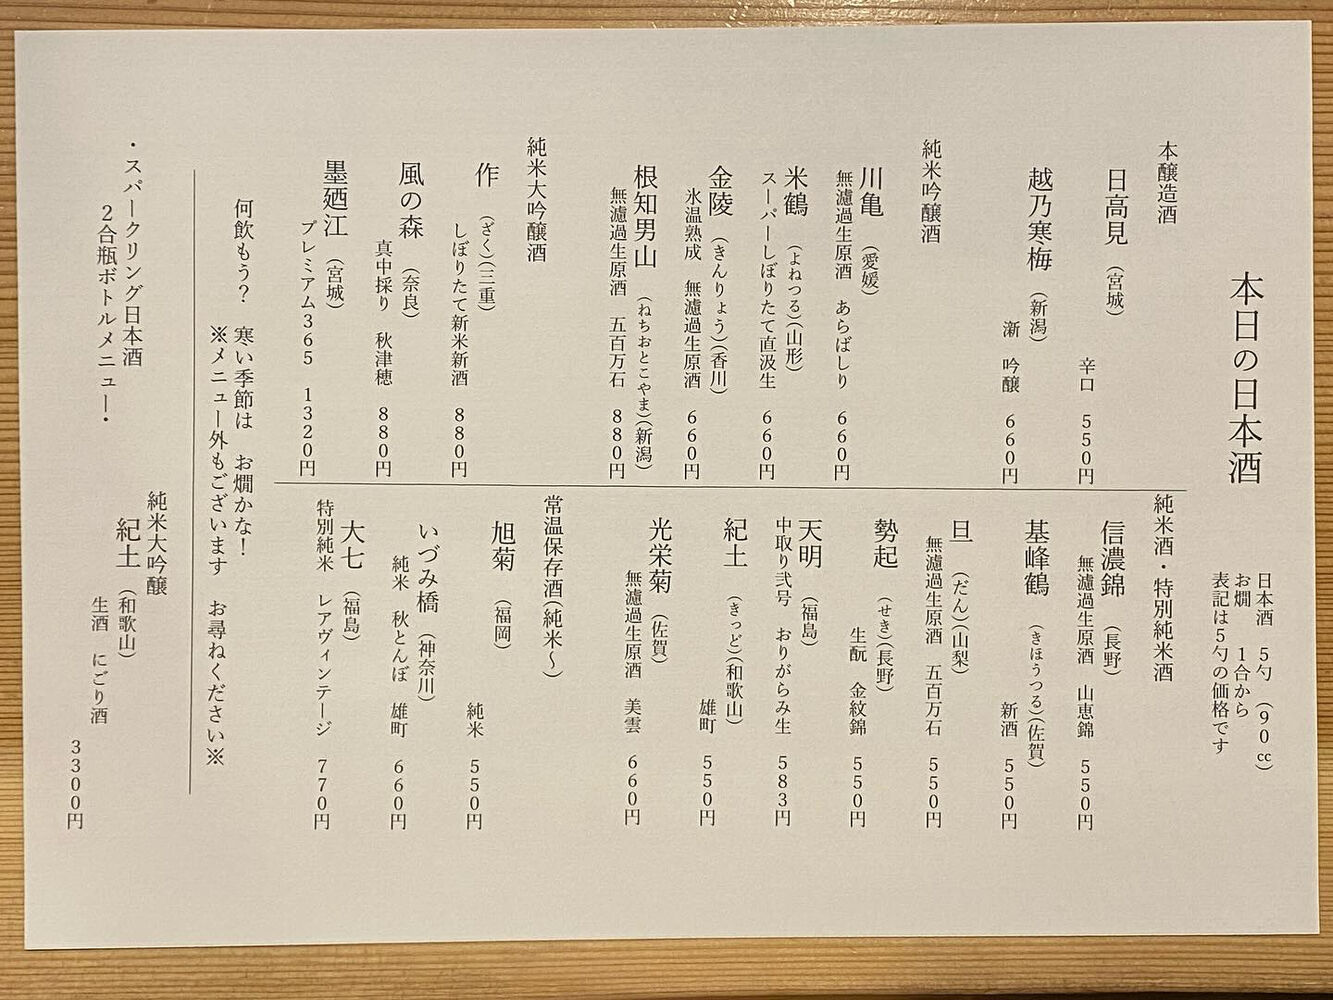 本日の日本酒
日本酒　5勺（90㏄）
お燗　1合から
表記は5勺の価格です
本醸造酒
日高見（宮城）
辛口　550円
越乃寒梅（新潟）
漸　吟醸　660円
純米吟醸酒
川亀（愛媛）
無濾過生原酒　あらばしり　660円
米鶴（よねつる）（山形）
スーパーしぼりたて直汲生　660円
金陵（きんりょう）（香川）
氷温熟成　無濾過生原酒　660円
根知男山（ねちおとこやま）（新潟）
無濾過生原酒　五百万石　880円
純米大吟醸酒
作（ざく）（三重）
しぼりたて新米新酒　880円
風の森（奈良）
真中採り　秋津穂　880円
墨廼江（宮城）
プレミアム365　1320円
純米酒・特別純米酒
信濃錦（長野）
無濾過生原酒　山恵錦　550円
基峰鶴（きほうつる）（佐賀）
新酒　550円
旦（だん）（山梨）
無濾過生原酒　五百万石　550円
勢起（せき）（長野）
生酛　金紋錦　550円
天明（福島）
中取り弐号　おりがらみ生　583円
紀土（きっど）（和歌山）
雄町　550円
光栄菊（佐賀）
無濾過生原酒　美雲　660円
常温保存酒（純米～）
旭菊（福岡）
純米　550円
いづみ橋（神奈川）
純米　秋とんぼ　雄町　660円
大七（福島）
特別純米　レアヴィンテージ　770円
何飲もう？　寒い季節は　お燗かな！
※メニュー外もございます　お尋ねください※
・スパークリング日本酒
2合瓶ボトルメニュー・
純米大吟醸
紀土（和歌山）
生酒　にごり酒
3300円